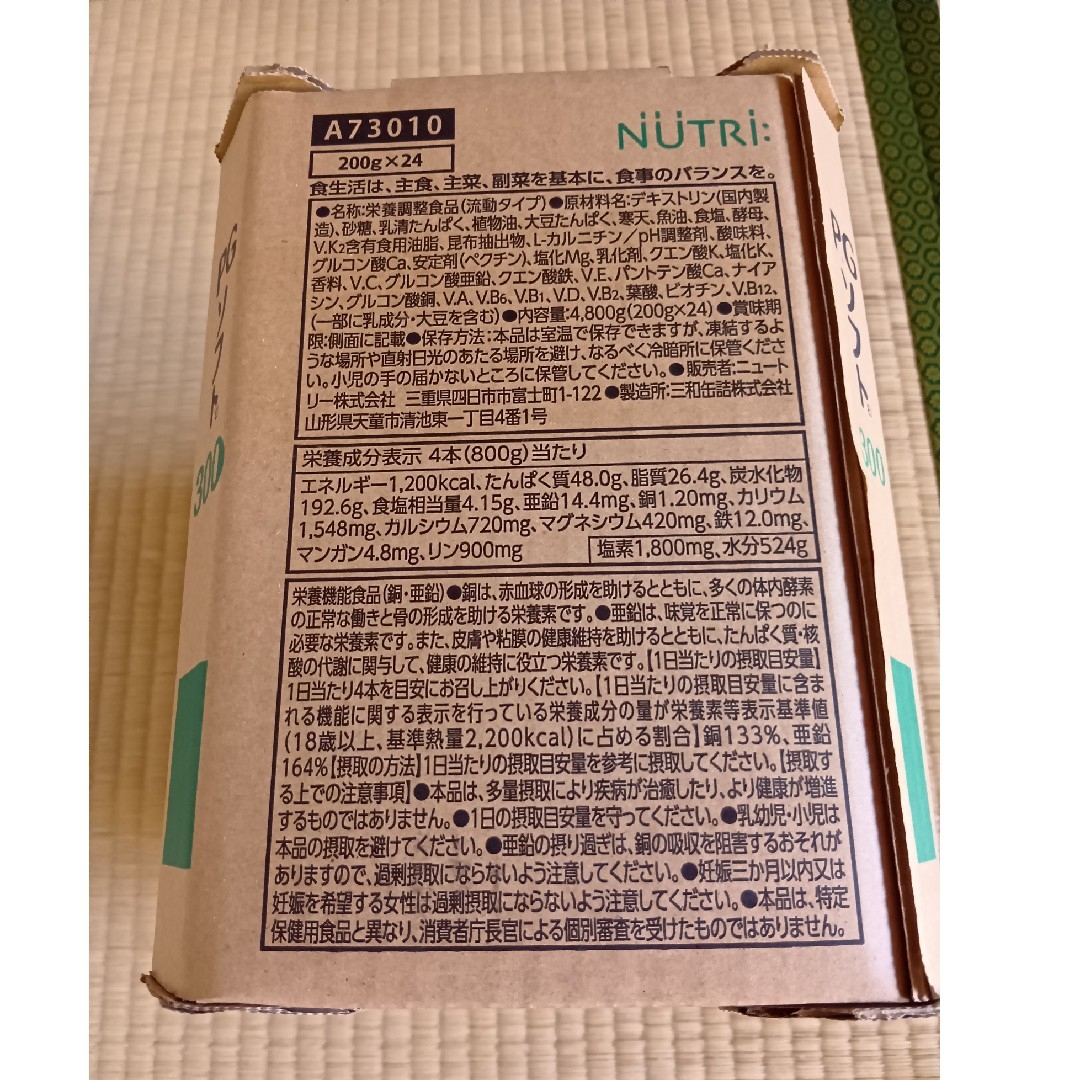 A73010
NUTRI:
200g×24
食生活は、主食、主菜、副菜を基本に、食事のバランスを。
●名称:栄養調整食品(流動タイプ)●原材料名:デキストリン(国内製
造)、砂糖、乳清たんぱく、植物油、大豆たんぱく、寒天、魚油、食塩、酵母、
V.K2含有食用油脂、昆布抽出物、L-カルニチン/pH調整剤、酸味料、
グルコン酸Ca、安定剤(ペクチン)、塩化Mg、乳化剤、クエン酸K、塩化K、
香料、V.C、グルコン酸亜鉛、クエン酸鉄、V.E、パントテン酸Ca、ナイア
シン、グルコン酸銅、V.A、V.B6、V.B1、V.D、V.B2、葉酸、ビオチン、V.B12、
(一部に乳成分・大豆を含む)●内容量:4,800g(200g×24)●賞味期
限:側面に記載●保存方法:本品は室温で保存できますが、凍結するよ
うな場所や直射日光のあたる場所を避け、なるべく冷暗所に保管くださ
い。小児の手の届かないところに保管してください。●販売者:ニュート
リー株式会社 三重県四日市市富士町1-122●製造所:三和缶詰株式会社
山形県天童市清池東一丁目4番1号
栄養成分表示 4本(800g)当たり
エネルギー1,200kcal、たんぱく質48.0g、脂質26.4g、炭水化物
192.6g、食塩相当量4.15g、亜鉛14.4mg、銅1.20mg、カリウム
1,548mg、カルシウム720mg、マグネシウム420mg、鉄12.0mg、
マンガン4.8mg、リン900mg
塩素1,800mg、水分524g
栄養機能食品(銅・亜鉛)●銅は、赤血球の形成を助けるとともに、多くの体内酵素
の正常な働きと骨の形成を助ける栄養素です。●亜鉛は、味覚を正常に保つのに
必要な栄養素です。また、皮膚や粘膜の健康維持を助けるとともに、たんぱく質・核
酸の代謝に関与して、健康の維持に役立つ栄養素です。【1日当たりの摂取目安量】
1日当たり4本を目安にお召し上がりください。【1日当たりの摂取目安量に含ま
れる機能に関する表示を行っている栄養成分の量が栄養素等表示基準値
(18歳以上、基準熱量2,200kcal)に占める割合】銅133%、亜鉛
164%【摂取の方法】1日当たりの摂取目安量を参考に摂取してください。【摂取す
る上での注意事項】●本品は、多量摂取により疾病が治癒したり、より健康が増進
するものではありません。●1日の摂取目安量を守ってください。●乳幼児・小児は
本品の摂取を避けてください。●亜鉛の摂り過ぎは、銅の吸収を阻害するおそれが
ありますので、過剰摂取にならないよう注意してください。●妊娠三か月以内又は
妊娠を希望する女性は過剰摂取にならないよう注意してください。●本品は、特定
保健用食品と異なり、消費者庁長官による個別審査を受けたものではありません。
PGソフト 300
PGソフト 300